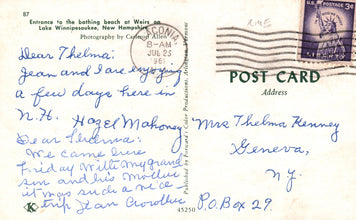 87
Entrance to the bathing beach at Weirs on
Lake Winnipesaukee, New Hampshire
Photography by Carleton Allen
LACONIA
8-AM
JUL 25
1961
U.S. POSTAGE 3¢
Dear Thelma:
Jean and I are enjoying
a few days here in
N.H. Hazel Mahoney
Dear Thelma:
We came here
Friday with my grand
son and his mother
it was such a nice
trip Jean
POST CARD
Address
Mrs Thelma Kenney
Geneva,
N.Y.
P.O. Box 29.
Published by Forward's Color Productions, Arlington, Vermont
K
45250